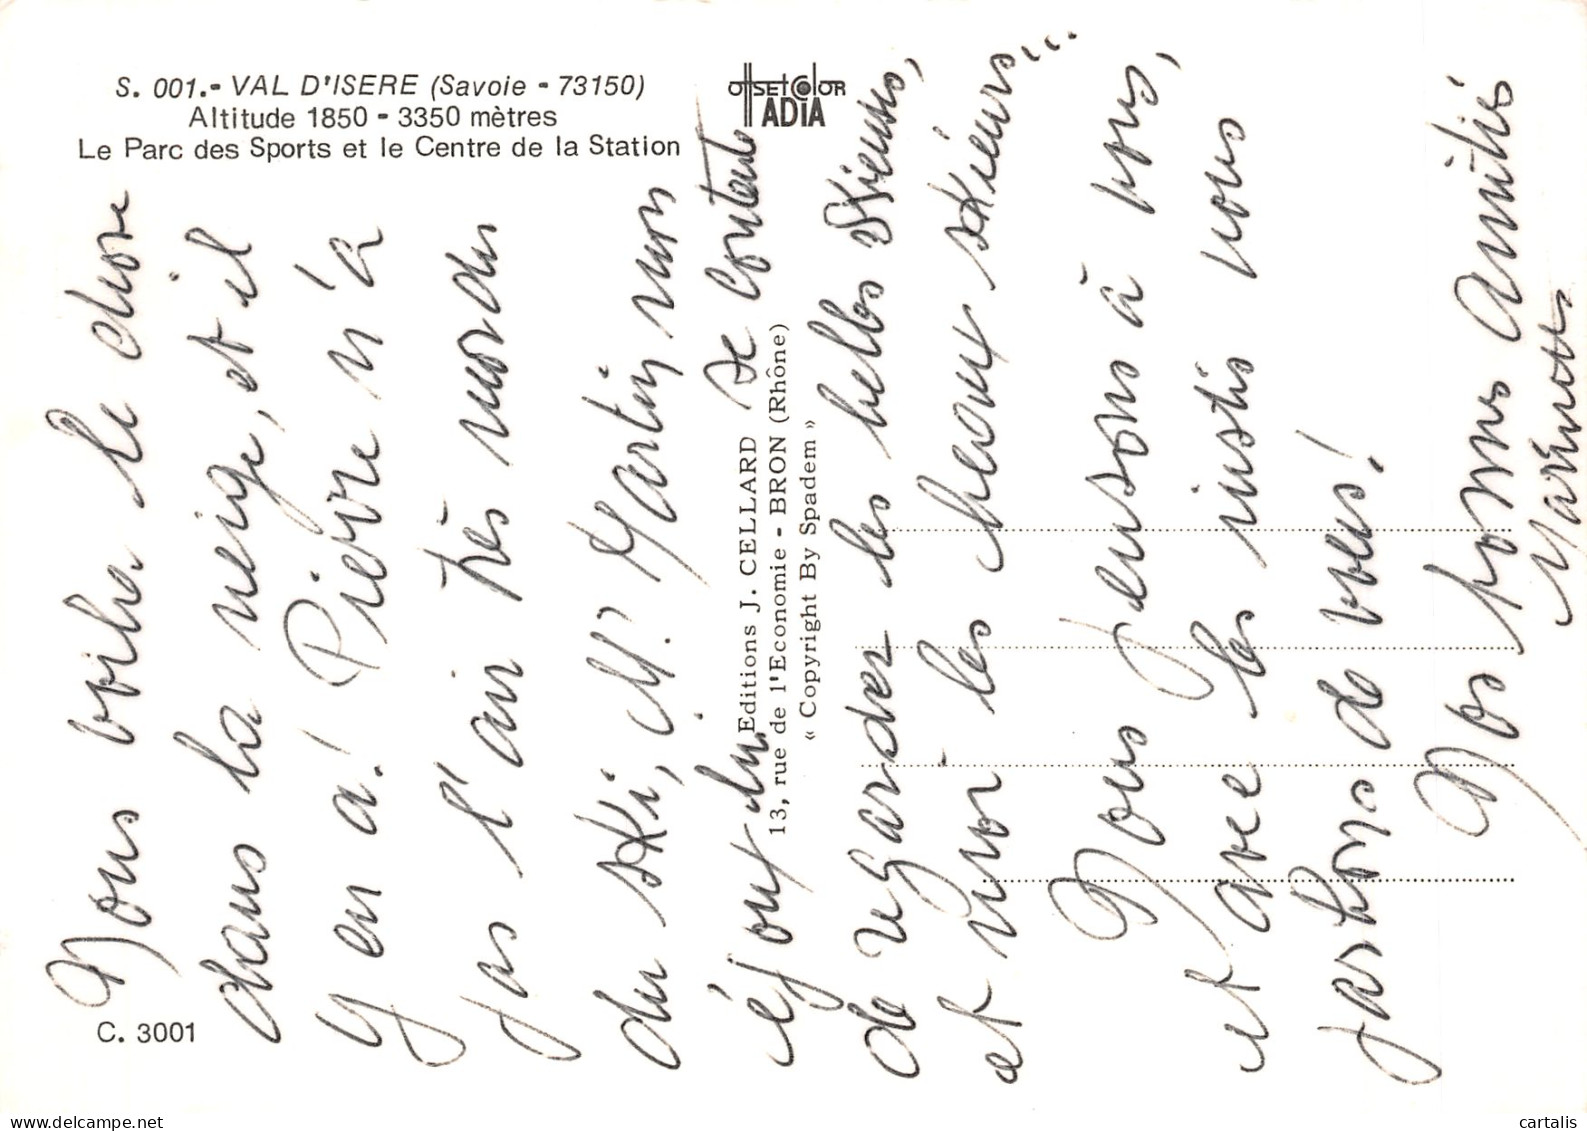 S. 001.- VAL D'ISERE (Savoie - 73150)
Altitude 1850 - 3350 mètres
Le Parc des Sports et le Centre de la Station
OffSET COLOR
ADIA
Editions J. CELLARD
13, rue de l'Economie - BRON (Rhône)
« Copyright By Spadem »
C. 3001
Nous voila le
dans la neige, et il
y en a! Pierre n'a
pas l'air très mordu
du ski, M! Martin non
se contente
de regarder les belles skieuses,
et moi les beaux skieurs...
Nous pensons à vous,
et avec les nous
parlons de vous!
Nos bonnes amitiés
cartalis